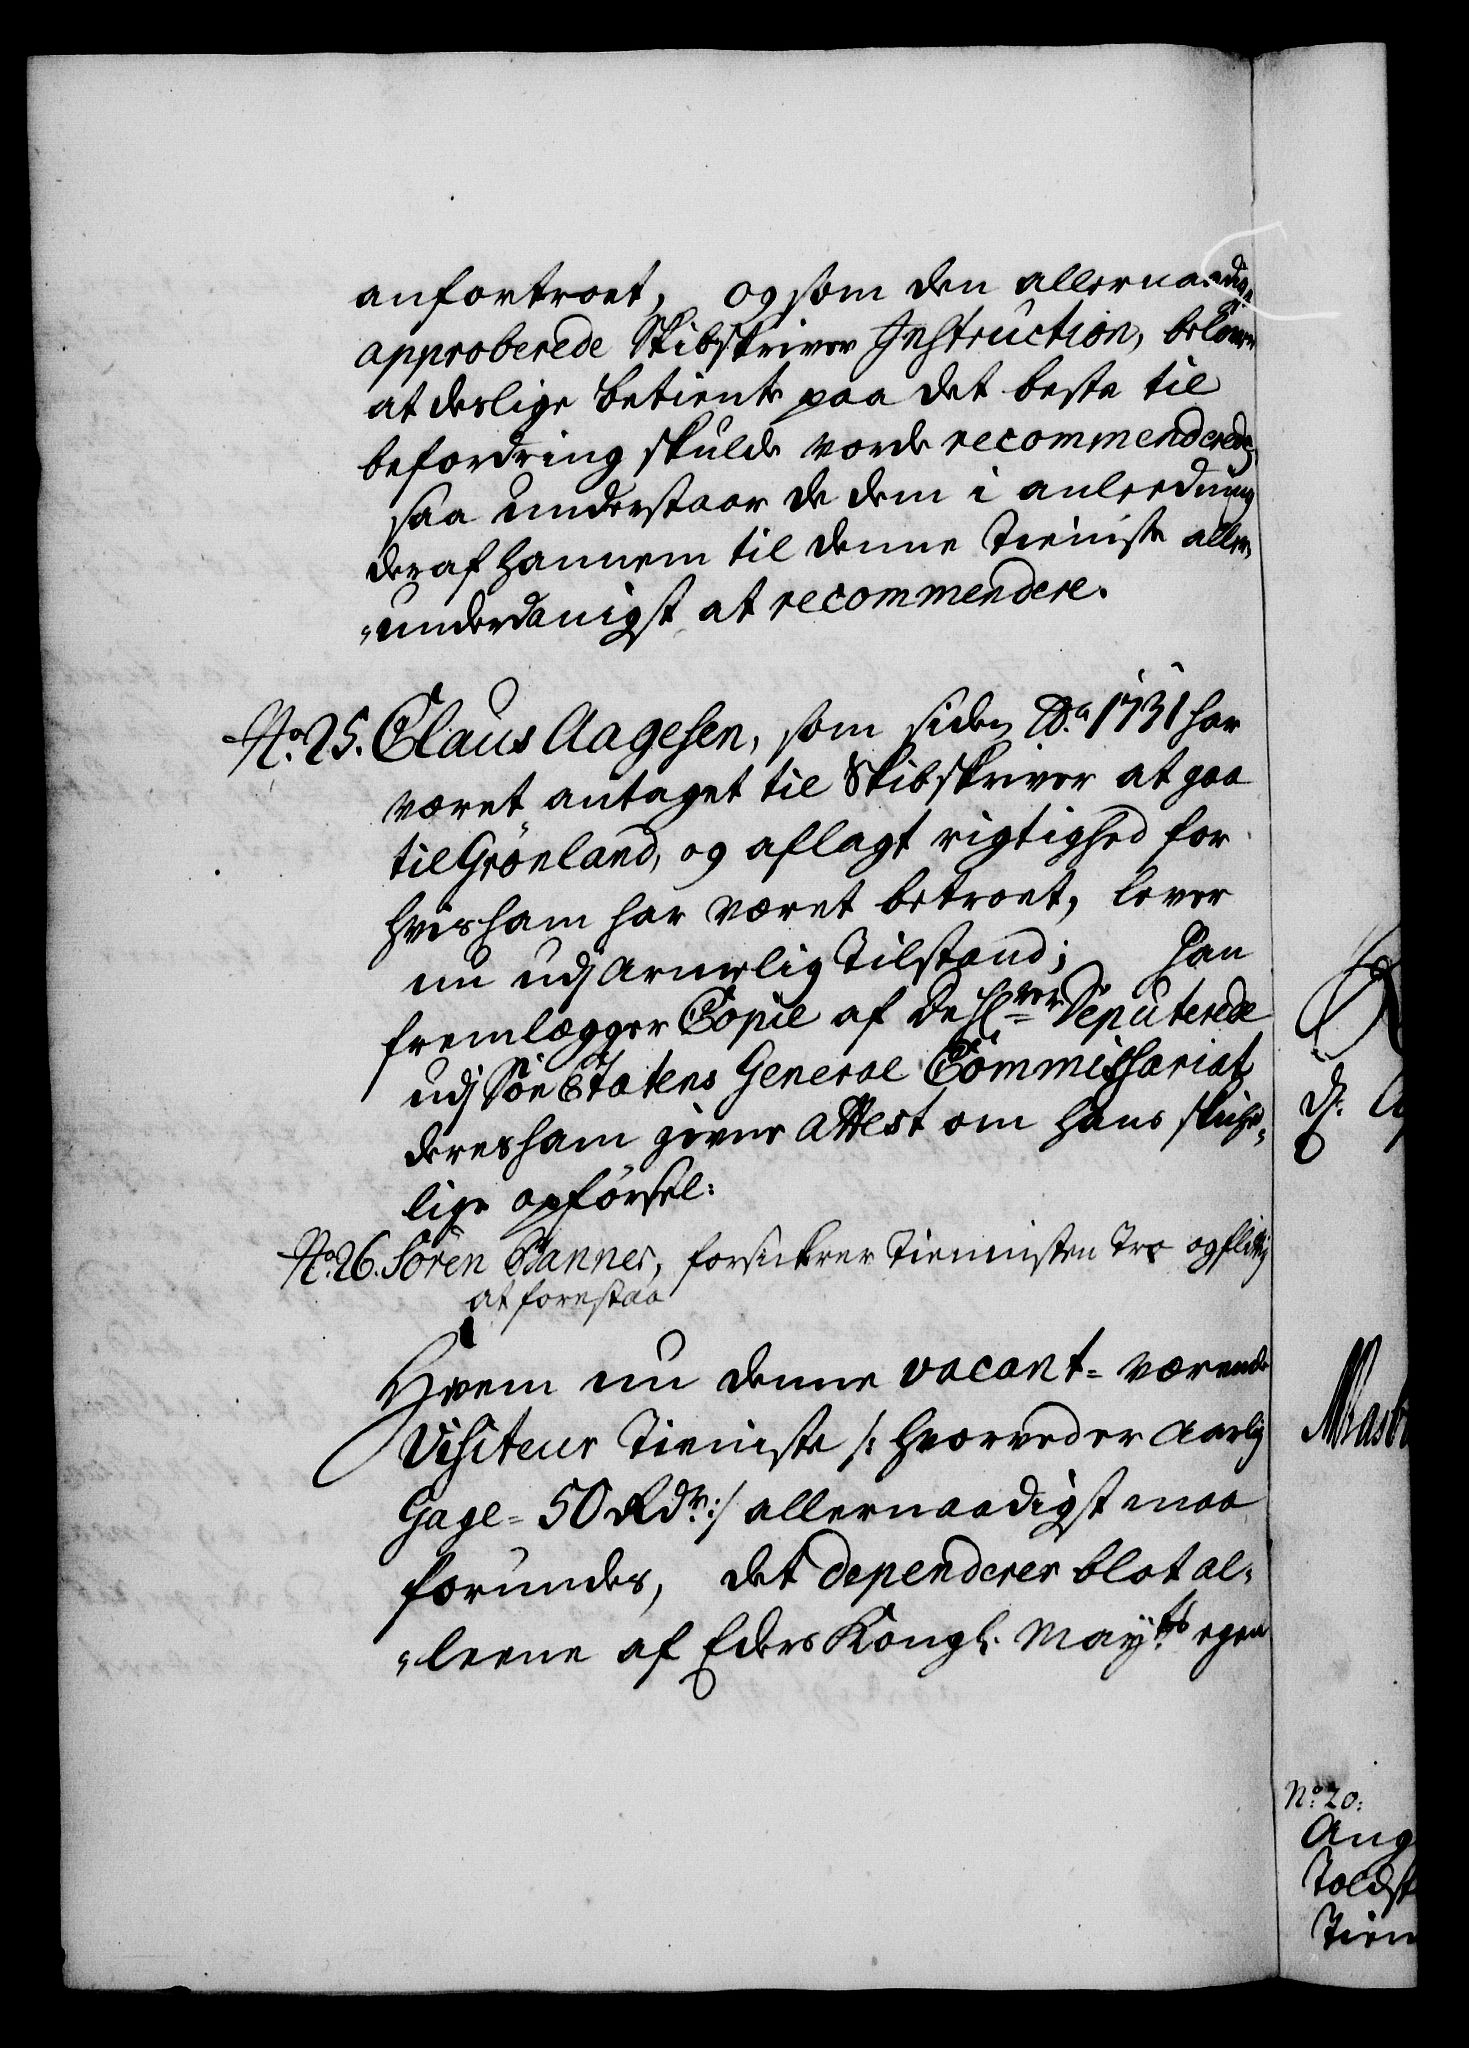 anfortroet, og som den allernaadigst
approberede Skibskriver Instruction, belover
at deslige betiente paa det beste til
befordring skulde vorde recommenderede,
saa understaar de dem i anleedning
deraf hannem til denne Tieniste aller,
"underdanigst at recommendere.
No. 25. Claus Aagesen, som siden Ao. 1731 har
været antaget til Skibskriver at gaa
til Grönland, og aflagt rigtighed for
hvis ham har været betroet, lever
nu udj armelig Tilstand; han
fremlægger Copie af de Hrr. Deputerede
udj Söe Etatens General Commissariat
deres ham givne Attest om hans skike-
lige opförsel:
No. 26. Sören Bannes, forsickrer Tiennisten Tro og flittig
at forestaa
Hvem nu denne vacant- værende
Visiteur Tieniste /: hvorved er aarlig
Gage- 50 Rdr. :/ allernaadigst maa
forundes, det dependerer blot al-
"leene af Eders Kongl. Mayts. egen
No. 20:
Ang
Toldst
Tien